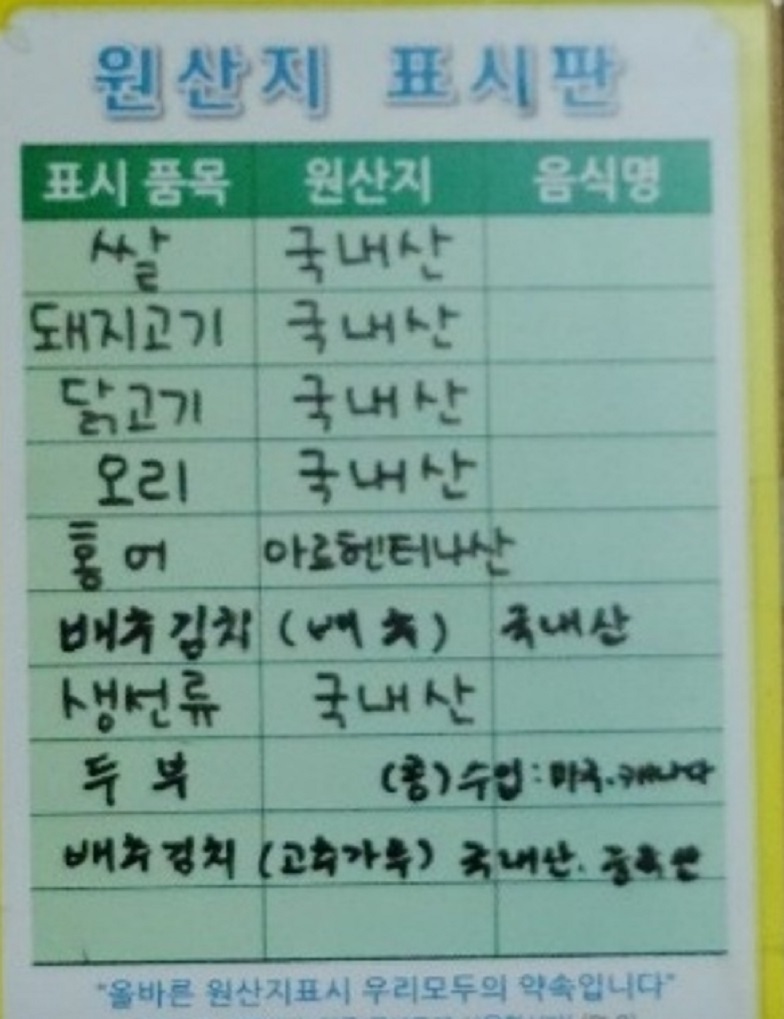 원산지 표시판
표시 품목 원산지 음식명
쌀 국내산
돼지고기 국내산
닭고기 국내산
오리 국내산
홍어 아르헨티나산
배추김치 (배추) 국내산
생선류 국내산
두부 (콩) 수입: 미국. 캐나다
배추김치 (고추가루) 국내산. 중국산
"올바른 원산지표시 우리모두의 약속입니다"